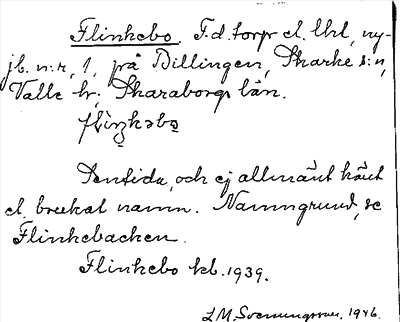 Flinkebo. F.d. torp el. lht, ny-
jb. n:r, 1, på Billingen, Skarke s:n,
Valle hr, Skaraborgs län.
flìŋkəbo
Sentida, och ej allmänt känt
el. brukat namn. Namngrund, se
Flinkebacken.
Flinkebo kb. 1939.
L M. Svenungsson, 1946.